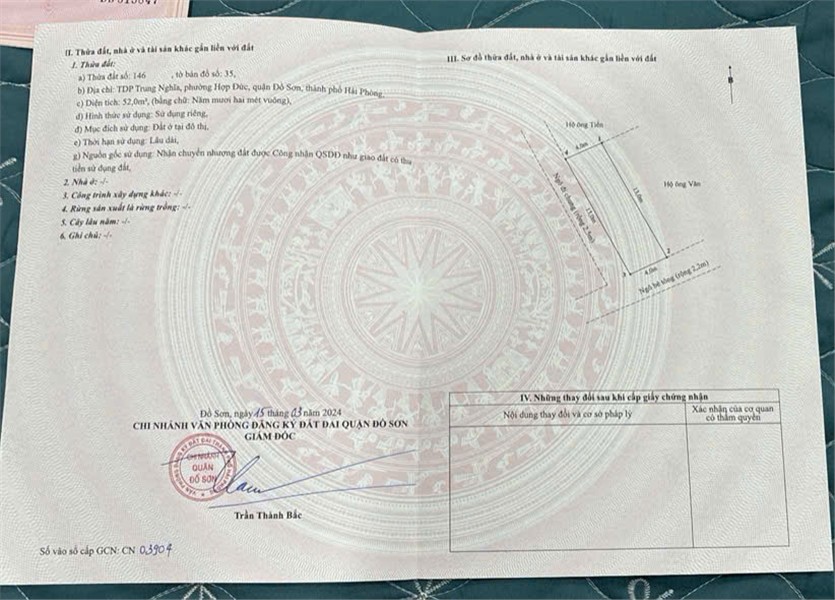 II. Thửa đất, nhà ở và tài sản khác gắn liền với đất
1. Thửa đất:
a) Thửa đất số: 146 , tờ bản đồ số: 35,
b) Địa chỉ: TDP Trung Nghĩa, phường Hợp Đức, quận Đồ Sơn, thành phố Hải Phòng,
c) Diện tích: 52,0m², (bằng chữ: Năm mươi hai mét vuông),
d) Hình thức sử dụng: Sử dụng riêng,
đ) Mục đích sử dụng: Đất ở tại đô thị,
e) Thời hạn sử dụng: Lâu dài,
g) Nguồn gốc sử dụng: Nhận chuyển nhượng đất được Công nhận QSDĐ như giao đất có thu
tiền sử dụng đất,
2. Nhà ở: -/-
3. Công trình xây dựng khác: -/-
4. Rừng sản xuất là rừng trồng: -/-
5. Cây lâu năm: -/-
6. Ghi chú: -/-
Đồ Sơn, ngày 15 tháng 03 năm 2024
CHI NHÁNH VĂN PHÒNG ĐĂNG KÝ ĐẤT ĐAI QUẬN ĐỒ SƠN
GIÁM ĐỐC
CHI NHÁNH
QUẬN
ĐỒ SƠN
Trần Thành Bắc
Số vào sổ cấp GCN: CN 03904
III. Sơ đồ thửa đất, nhà ở và tài sản khác gắn liền với đất
B
Hộ ông Tiến
4
4.0m
1
Hộ ông Văn
13.0m
13.0m
Ngõ đi chung (rộng 2.5m)
3
4.0m
2
Ngõ bê tông (rộng 2,2m)
IV. Những thay đổi sau khi cấp giấy chứng nhận
Nội dung thay đổi và cơ sở pháp lý
Xác nhận của cơ quan
có thẩm quyền